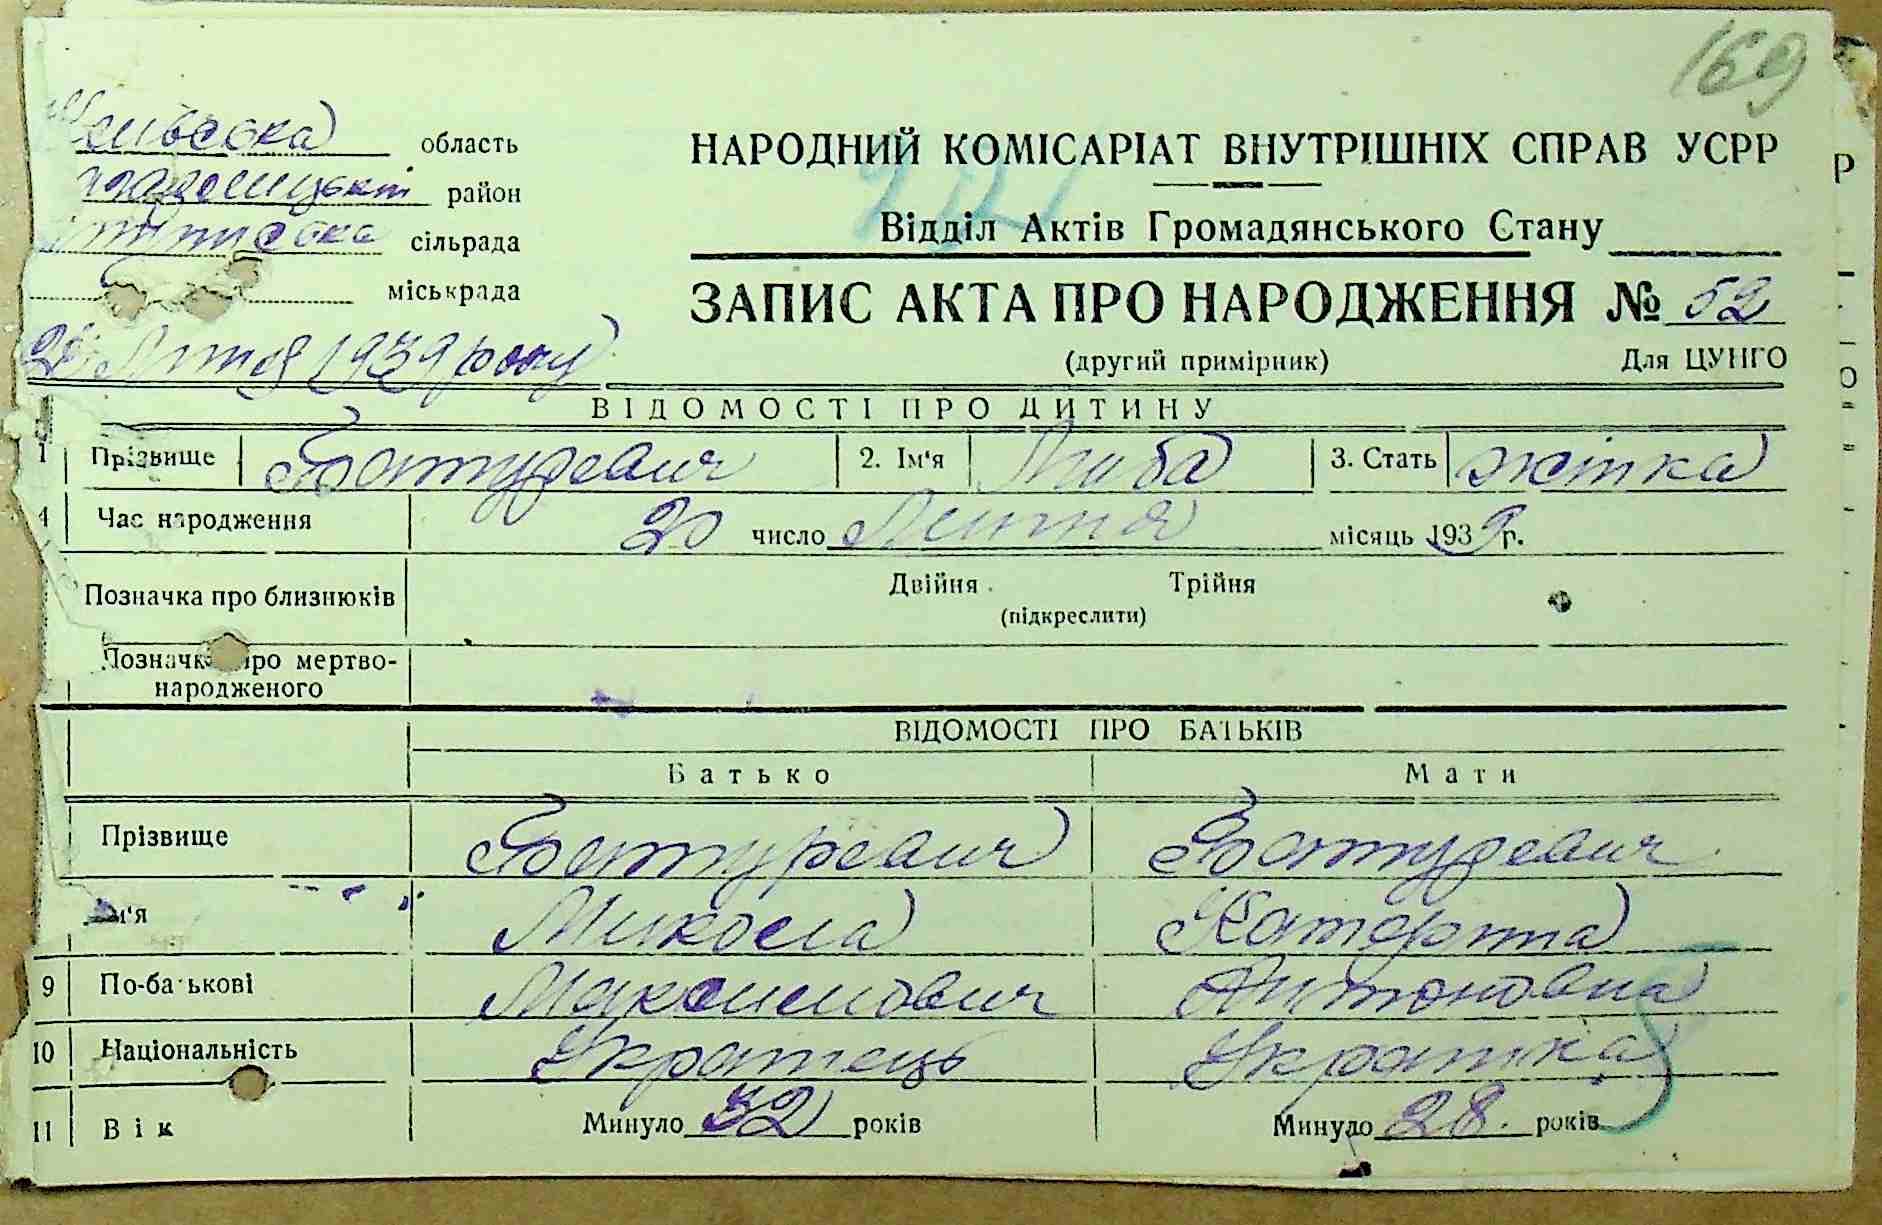 169
область
район
сільрада
міськрада
Лютого 1939 року
НАРОДНИЙ КОМІСАРІАТ ВНУТРІШНІХ СПРАВ УСРР
Відділ Актів Громадянського Стану
ЗАПИС АКТА ПРО НАРОДЖЕННЯ № 52
(другий примірник) Для ЦУНГО
ВІДОМОСТІ ПРО ДИТИНУ
1 Прізвище Батуревич 2. Ім'я Люба 3. Стать жінка
4 Час народження 20 число Лютня місяць 1939 р.
Позначка про близнюків Двійня Трійня
(підкреслити)
Позначка про мертво-
народженого
ВІДОМОСТІ ПРО БАТЬКІВ
Батько Мати
Прізвище Батуревич Батуревич
Ім'я Микола Катерина
9 По-батькові Максимович Антоновна
10 Національність Українець Українка
11 Вік Минуло 32 років Минуло 28 років